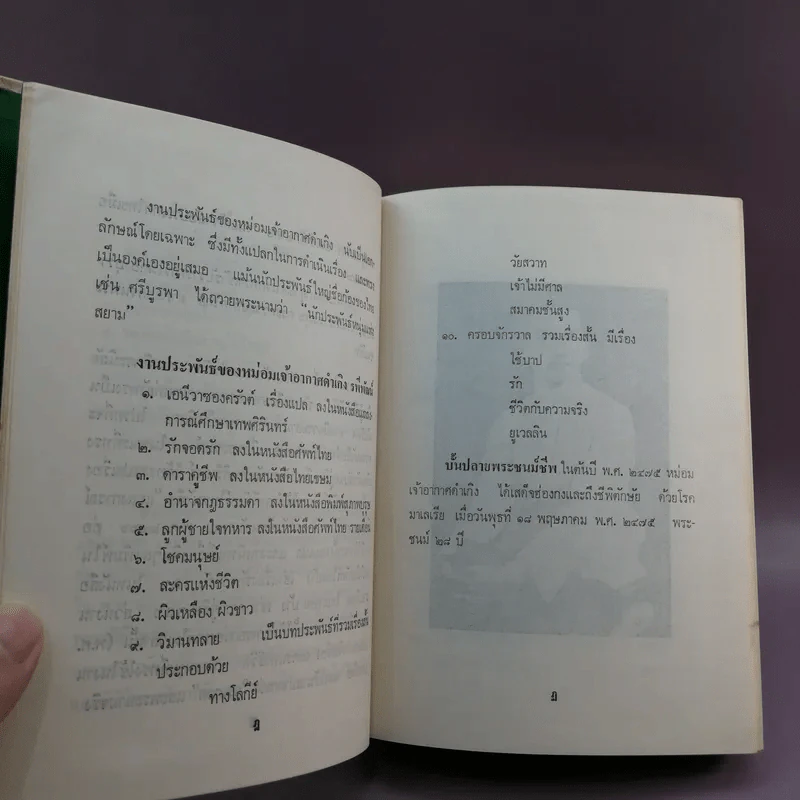 งานประพันธ์ของหม่อมเจ้าอากาศดำเกิง นับเป็น
ลักษณ์โดยเฉพาะ ซึ่งมีทั้งแปลกในการดำเนินเรื่อง และ
เป็นองค์เองอยู่เสมอ แม้นนักประพันธ์ใหญ่ชื่อก้องของไทย
เช่น ศรีบูรพา ได้ถวายพระนามว่า "นักประพันธ์หนุ่มแห่ง
สยาม"
งานประพันธ์ของหม่อมเจ้าอากาศดำเกิง รพีพัฒน์
๑. เอนีวาซองครัวต์ เรื่องแปล ลงในหนังสือ
การณ์ศึกษาเทพศิรินทร์
๒. รักจอดรัก ลงในหนังสือศัพท์ไทย
๓. ดาราคู่ชีพ ลงในหนังสือไทยเขษม
๔. อำนาจกฎธรรมดา ลงในหนังสือพิมพ์สุภาพบุรุษ
๕. ลูกผู้ชายใจทหาร ลงในหนังสือศัพท์ไทย รายเดือน
๖. โชคมนุษย์
๗. ละครแห่งชีวิต
๘. ผิวเหลือง ผิวขาว
๙. วิมานทลาย เป็นบทประพันธ์ที่รวมเรื่องสั้น
ประกอบด้วย
ทางโลกีย์
วัยสวาท
เจ้าไม่มีศาล
สมาคมชั้นสูง
๑๐. ครอบจักรวาล รวมเรื่องสั้น มีเรื่อง
ใช้บาป
รัก
ชีวิตกับความจริง
ยูเวลลิน
บั้นปลายพระชนม์ชีพ ในต้นปี พ.ศ. ๒๔๗๕ หม่อม
เจ้าอากาศดำเกิง ได้เสด็จฮ่องกงและถึงชีพิตักษัย ด้วยโรค
มาเลเรีย เมื่อวันพุธที่ ๑๘ พฤษภาคม พ.ศ. ๒๔๗๕ พระ-
ชนม์ ๒๘ ปี